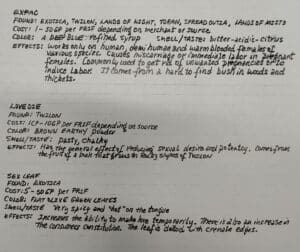 FOUND: EXOTICA, TWILON, LANDS OF NIGHT, TOBAN, SPREADOUTA, LANDS OF MISTS
COST: 1-50GP per depending on merchant or source
COLOR: A DEEP BLUE refined syrup SMELL/TASTE: bitter-acidic-citrus
EFFECTS: Works only on human, demi human and warm blooded females of
various species. Causes miscarriage or immediate labor in pregnant
females. Commonly used to get rid of unwanted pregnancies or to
induce labor. It comes from a hard to find bush in woods and
thickets.
FOUND: TWILON
COST: depending on source
COLOR: BROWN EARTHY powder
SMELL/TASTE: pasty, chalky
EFFECTS: Has the general effects of reducing sexual desire and potentcy. Comes from
the fruit of a bush that grows on rocky slopes of TWILON
SEX LEAF
FOUND: EXOTICA
COST: 5-50GP per
COLOR: FLAT OLIVE GREEN LEAVES
SMELL/TASTE Very spicy and "hot" on the tongue
EFFECTS: Increases the ability to make love temporarily. There is also an increase in
the consumers constitution. The leaf is with crenate edges.